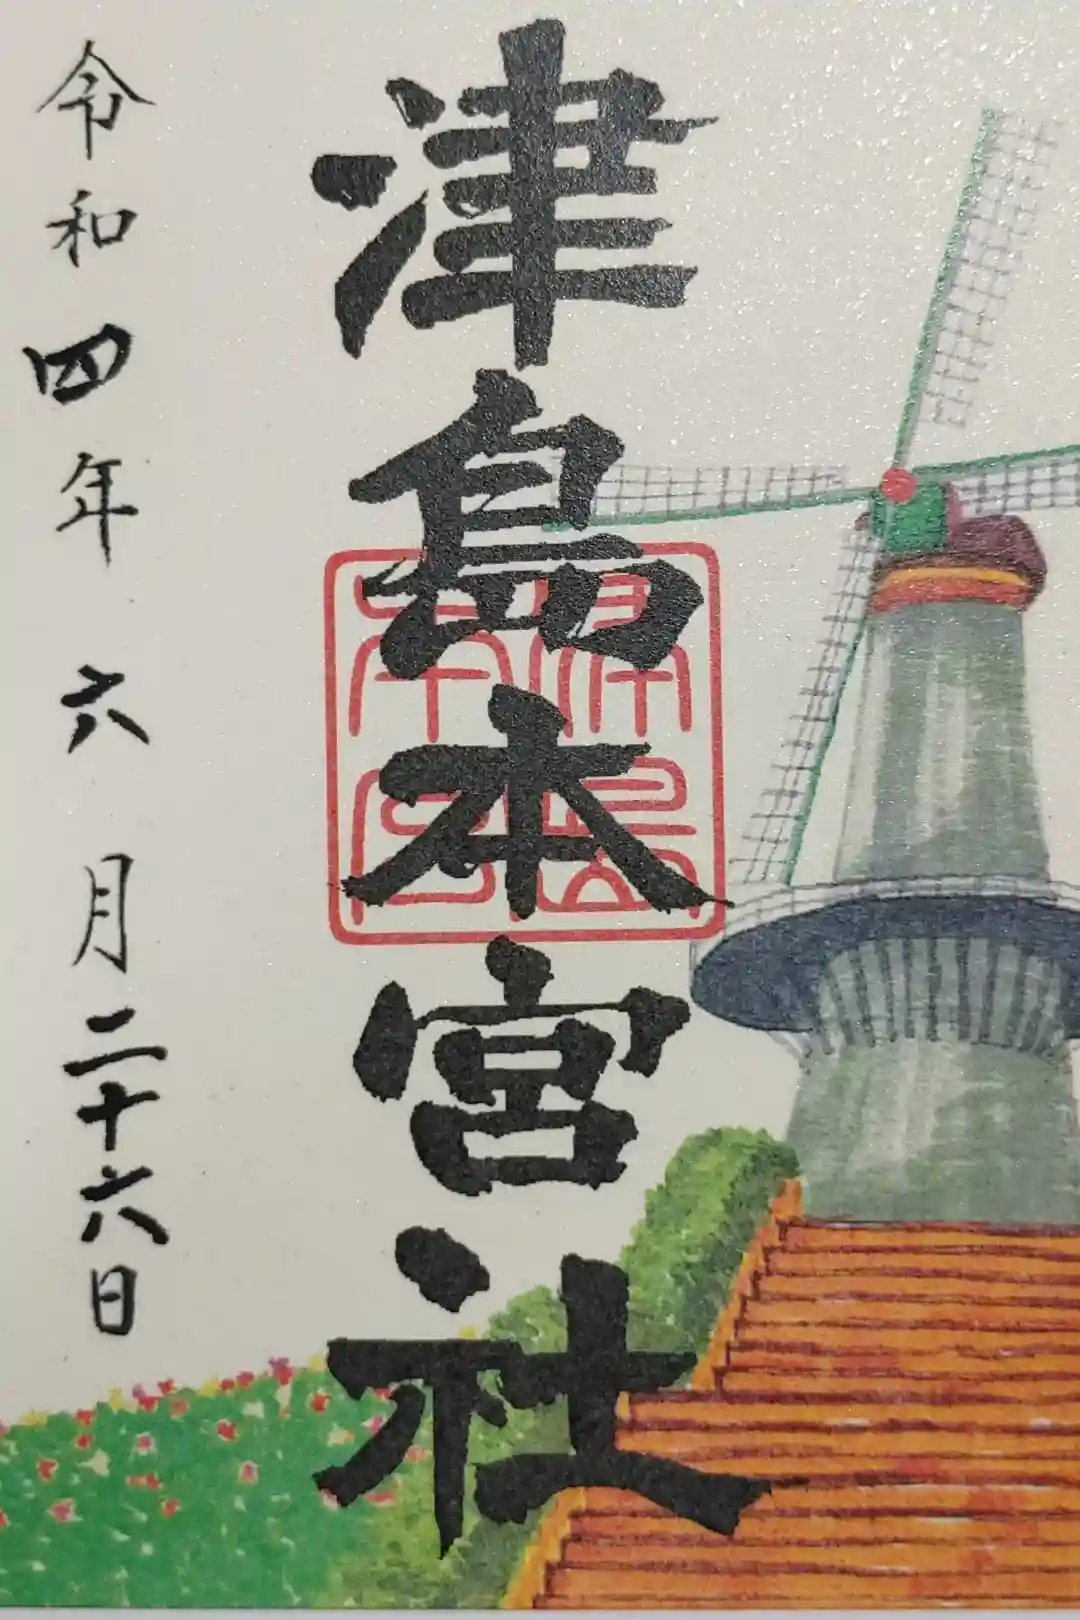 津島本宮社
令和四年六月二十六日